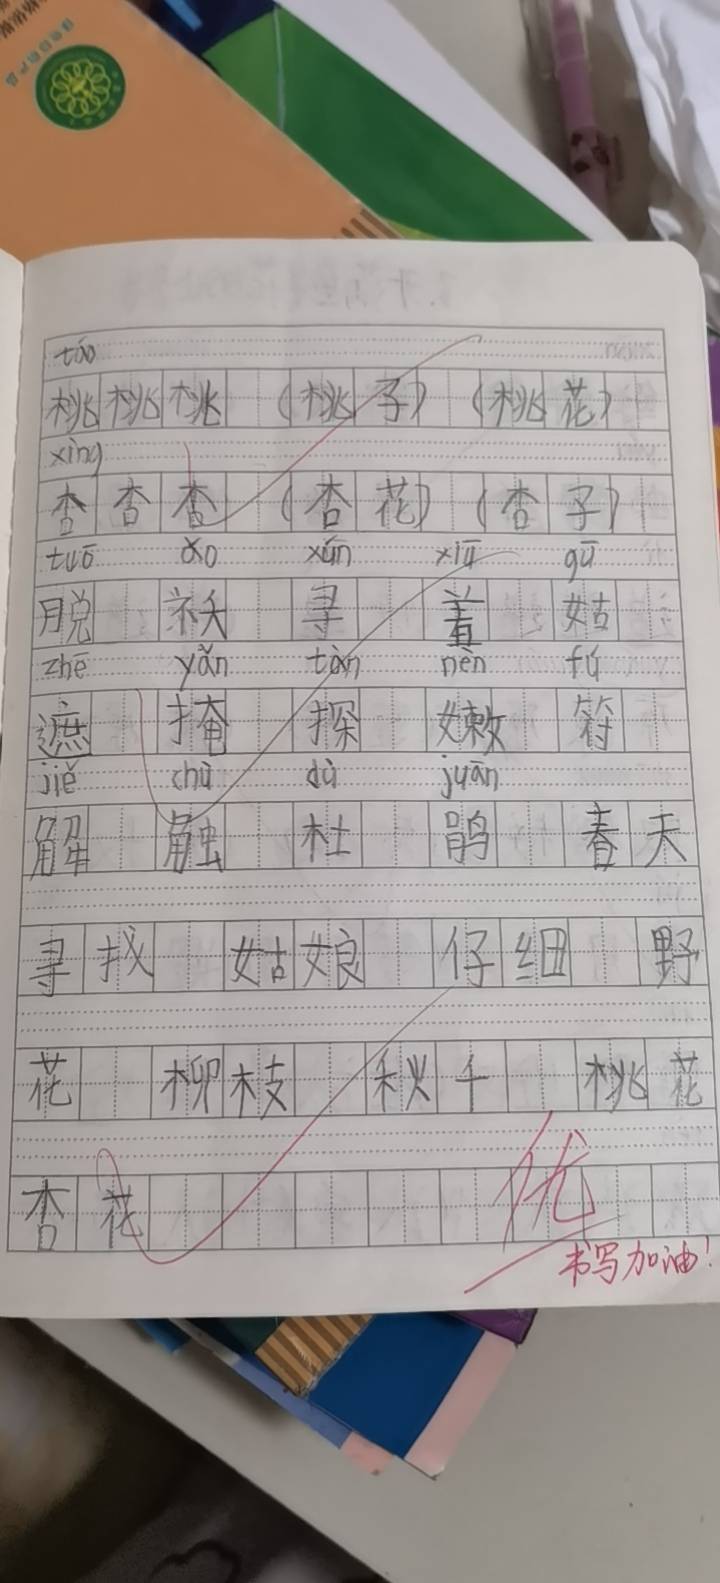 táo
桃桃桃（桃子）（桃花）
xìng
杏杏杏（杏花）（杏子）
tuō ǎo xún xiū gū
脱 袄 寻 羞 姑
zhē yǎn tàn nèn fú
遮 掩 探 嫩 符
jiě chù dù juān
解 触 杜 鹃 春天
寻找 姑娘 仔细 野
花 柳枝 秋千 桃花
杏花
优
书写加油！